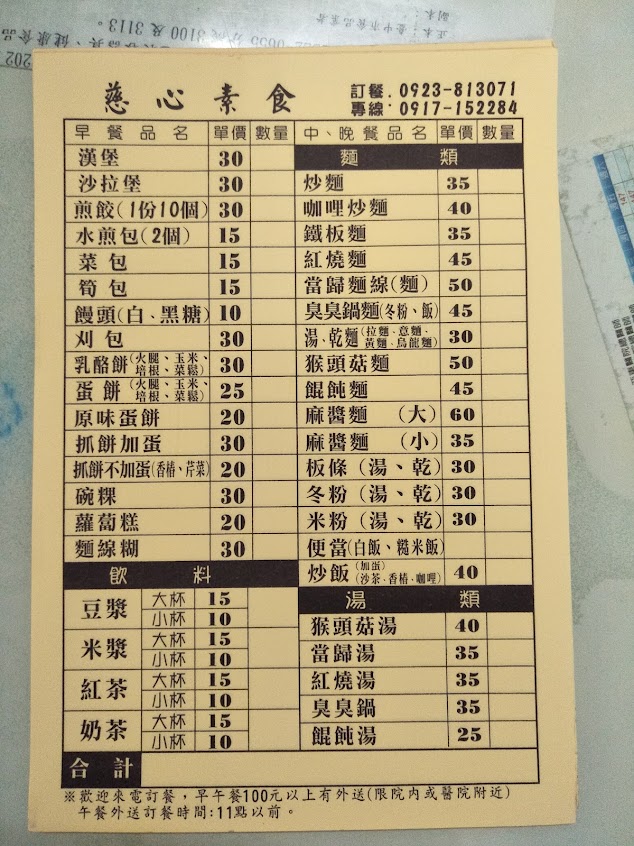 慈心素食
訂餐. 0923-813071
專線. 0917-152284
早餐品名 單價 數量
漢堡 30
沙拉堡 30
煎餃(1份10個) 30
水煎包(2個) 15
菜包 15
筍包 15
饅頭(白、黑糖) 10
刈包 30
乳酪餅(火腿、玉米、培根、菜鬆) 30
蛋餅(火腿、玉米、培根、菜鬆) 25
原味蛋餅 20
抓餅加蛋 30
抓餅不加蛋(香椿、芹菜) 20
碗粿 30
蘿蔔糕 20
麵線糊 30
飲料
豆漿 大杯 15
小杯 10
米漿 大杯 15
小杯 10
紅茶 大杯 15
小杯 10
奶茶 大杯 15
小杯 10
合計
中、晚餐品名 單價 數量
麵類
炒麵 35
咖哩炒麵 40
鐵板麵 35
紅燒麵 45
當歸麵線(麵) 50
臭臭鍋麵(冬粉、飯) 45
湯、乾麵(拉麵、意麵、黃麵、烏龍麵) 30
猴頭菇麵 50
餛飩麵 45
麻醬麵 (大) 60
麻醬麵 (小) 35
板條(湯、乾) 30
冬粉(湯、乾) 30
米粉(湯、乾) 30
便當(白飯、糙米飯)
炒飯(加蛋)(沙茶、香椿、咖哩) 40
湯類
猴頭菇湯 40
當歸湯 35
紅燒湯 35
臭臭鍋 35
餛飩湯 25
※歡迎來電訂餐,早午餐100元以上有外送(限院內或醫院附近)
午餐外送訂餐時間:11點以前。